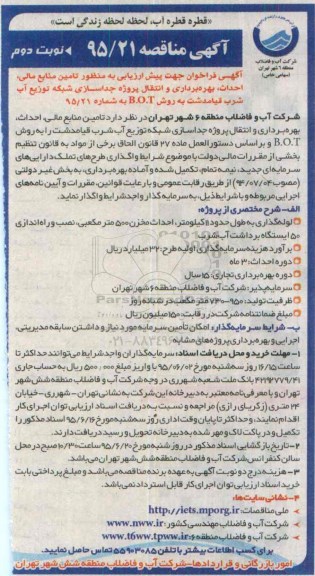 «قطره قطره آب، لحظه لحظه زندگی است»
آگهی مناقصه ۹۵/۲۱
نوبت دوم
شرکت آب و فاضلاب
منطقه ۶ شهر تهران
(سهامی خاص)
آگهی فراخوان جهت پیش ارزیابی به منظور تامین منابع مالی،
احداث، بهره‌برداری و انتقال پروژه جداسازی شبکه توزیع آب
شرب قیامدشت به روش B.O.T به شماره ۹۵/۲۱
شرکت آب و فاضلاب منطقه ۶ شهر تهران در نظر دارد تامین منابع مالی، احداث،
بهره‌برداری و انتقال پروژه جداسازی شبکه توزیع آب شرب قیامدشت را به روش
B.O.T و بر اساس دستورالعمل ماده ۲۷ قانون الحاق برخی از مواد به قانون تنظیم
بخشی از مقررات مالی دولت با موضوع شرایط واگذاری طرح‌های تملک دارایی‌های
سرمایه‌ای جدید، نیمه تمام، تکمیل شده و آماده بهره‌برداری، به بخش غیر دولتی
(مصوب ۹۴/۰۷/۰۴) از طریق رقابت عمومی و با رعایت قوانین، مقررات و آیین نامه‌های
اجرایی مربوطه و با شرایط ذیل، به سرمایه گذار واجد شرایط واگذار نماید.
الف- شرح مختصری از پروژه:
لوله‌گذاری به طول حدود ۶ کیلومتر، احداث مخزن ۵۰۰ متر مکعبی، نصب و راه اندازی
۵۰ ایستگاه برداشت آب شرب
برآورد هزینه سرمایه‌گذاری اولیه طرح: ۳۲ میلیارد ریال
دوره احداث: ۳ ماه
دوره بهره‌برداری تجاری: ۱۵ سال
سرمایه‌پذیر: شرکت آب و فاضلاب منطقه ۶ شهر تهران
ظرفیت تولید: ۹۵۰-۷۳۰ متر مکعب در شبانه روز
مبلغ ضمانتنامه شرکت در رقابت: ۱۵۰ میلیون ریال
ب- شرایط سرمایه‌گذار: امکان تأمین سرمایه مورد نیاز و داشتن سابقه مدیریتی،
اجرایی و بهره‌برداری پروژه‌های مشابه
۱- مهلت خرید و محل دریافت اسناد: سرمایه‌گذاران واجد شرایط می‌توانند حداکثر تا
ساعت ۱۶/۱۵ روز سه‌شنبه مورخ ۹۵/۰۶/۰۲ با واریز مبلغ ۵۰۰/۰۰۰ ریال به حساب جاری
بانک ملت شعبه شهرری در وجه شرکت آب و فاضلاب منطقه شش شهر
تهران و با معرفی نامه معتبر به دبیرخانه این شرکت به نشانی تهران - شهرری - خیابان
۲۴ متری (زکریای رازی) مراجعه و نسبت به دریافت اسناد ارزیابی توان اجرای کار
اقدام نمایند، و حداکثر تا پایان وقت اداری روز سه‌شنبه مورخ ۹۵/۶/۱۶ اسناد مذکور را
تکمیل و در پاکت لاک و مهر شده به دبیرخانه تحویل و رسید دریافت دارند.
۲- تاریخ بازگشایی اسناد مذکور در روز شنبه مورخ ۹۵/۶/۲۰ ساعت ۱۰/۳۰ صبح در محل
سالن کنفرانس شرکت آب و فاضلاب منطقه شش شهر تهران می‌باشد.
۳- هزینه درج دو نوبت آگهی به عهده برنده مناقصه می‌باشد و مبلغ پرداختی بابت
خرید اسناد ارزیابی توان اجرای کار قابل استرداد نمی‌باشد.
۴- نشانی سایت‌ها:
ملی مناقصات: http://iets.mporg.ir
شرکت آب و فاضلاب مهندسی کشور: www.nww.ir
شرکت آب و فاضلاب منطقه ۶: www.t6ww.tpww.ir
برای کسب اطلاعات بیشتر با تلفن ۵۵۹۰۳۰۸۵ تماس حاصل نمایید.
امور بازرگانی و قراردادها- شرکت آب و فاضلاب منطقه شش شهر تهران